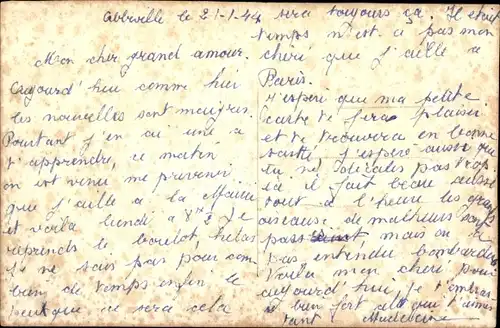 Abbeville le 21-1-44
Mon cher grand amour.
Aujourd'hui comme hui
les nouvelles sont maigres
Pourtant j'en ai une a
t'apprendre, ce matin
on est venu me prévenir
que j'aille a la Mairie
et voila lundi a 8H 1/2 Je
reprends le boulot, helas
je ne sais pas pour com
bien de temps enfin le
peu que ce sera cela
sera toujours ça. Il était
temps n'est ce pas mon
chéri que j'aille a
Paris.
J'espère que ma petite
carte te fera plaisir
et te trouvera en bonne
santé j'espère aussi que
tu ne pas trop
ici il fait beau aussi
tout a l'heure les grands
oiseaux de malheurs sont
passé mais on a
pas entendu bombarder
Voila mon chéri pour
aujourd'hui, je t'embrasse
bien fort celle que t'aime
tant Madeleine